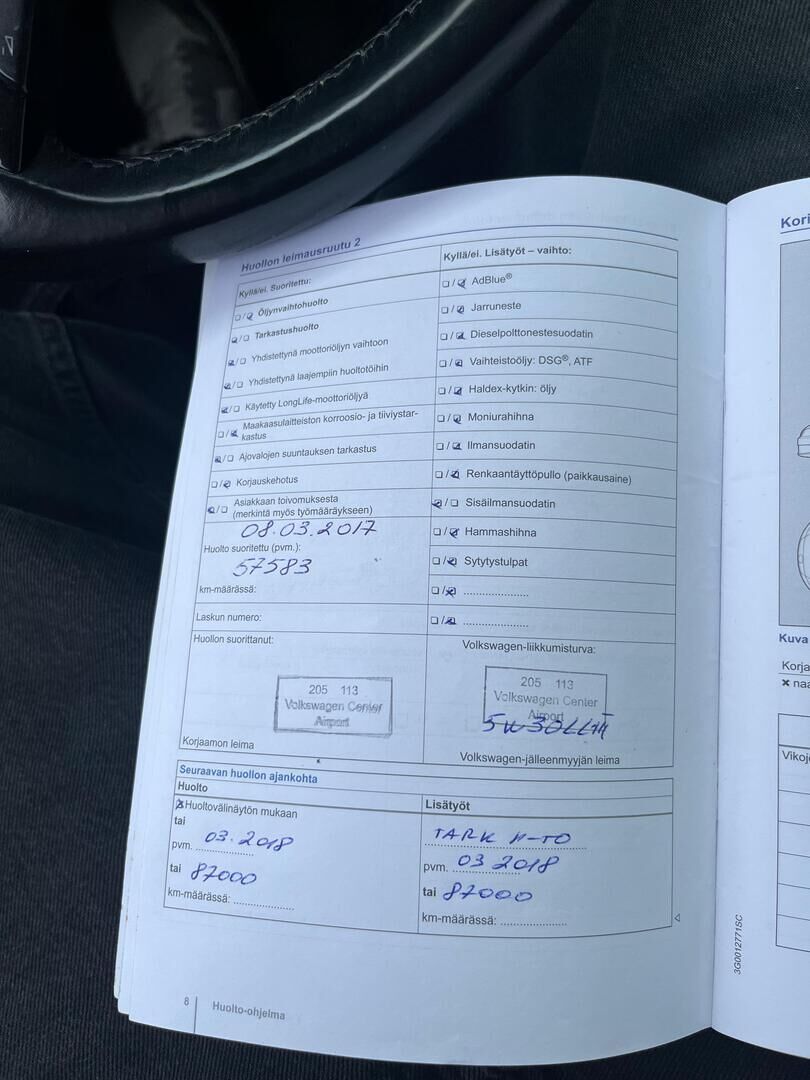 Huollon leimausruutu 2
Kyllä/ei. Suoritettu:
☐/☑ Öljynvaihtohuolto
☑/☐ Tarkastushuolto
☑/☐ Yhdistettynä moottoriöljyn vaihtoon
☑/☐ Yhdistettynä laajempiin huoltotöihin
☑/☐ Käytetty LongLife-moottoriöljyä
☐/☑ Maakaasulaitteiston korroosio- ja tiiviystar-
kastus
☑/☐ Ajovalojen suuntauksen tarkastus
☐/☑ Korjauskehotus
☑/☐ Asiakkaan toivomuksesta
(merkintä myös työmääräykseen)
08.03.2017
Huolto suoritettu (pvm.):
57583
km-määrässä:
Laskun numero:
Huollon suorittanut:
205 113
Volkswagen Center
Airport
Korjaamon leima
Kyllä/ei. Lisätyöt – vaihto:
☐/☑ AdBlue®
☐/☑ Jarruneste
☐/☑ Dieselpolttonestesuodatin
☐/☑ Vaihteistoöljy: DSG®, ATF
☐/☑ Haldex-kytkin: öljy
☐/☑ Moniurahihna
☐/☑ Ilmansuodatin
☐/☑ Renkaantäyttöpullo (paikkausaine)
☑/☐ Sisäilmansuodatin
☐/☑ Hammashihna
☐/☑ Sytytystulpat
☐/☑ ......................
☐/☑ ......................
Volkswagen-liikkumisturva:
205 113
Volkswagen Center
Airport
5W30LLIII
Volkswagen-jälleenmyyjän leima
Seuraavan huollon ajankohta
Huolto
☒ Huoltovälinäytön mukaan
tai
pvm. 03.2018
tai 87000
km-määrässä: ....................
Lisätyöt
TARK H-TO
pvm. 03 2018
tai 87000
km-määrässä: ......................
8 Huolto-ohjelma
3G0012771SC
Kori
Kuva
Korja
✖ naa
Vikoj